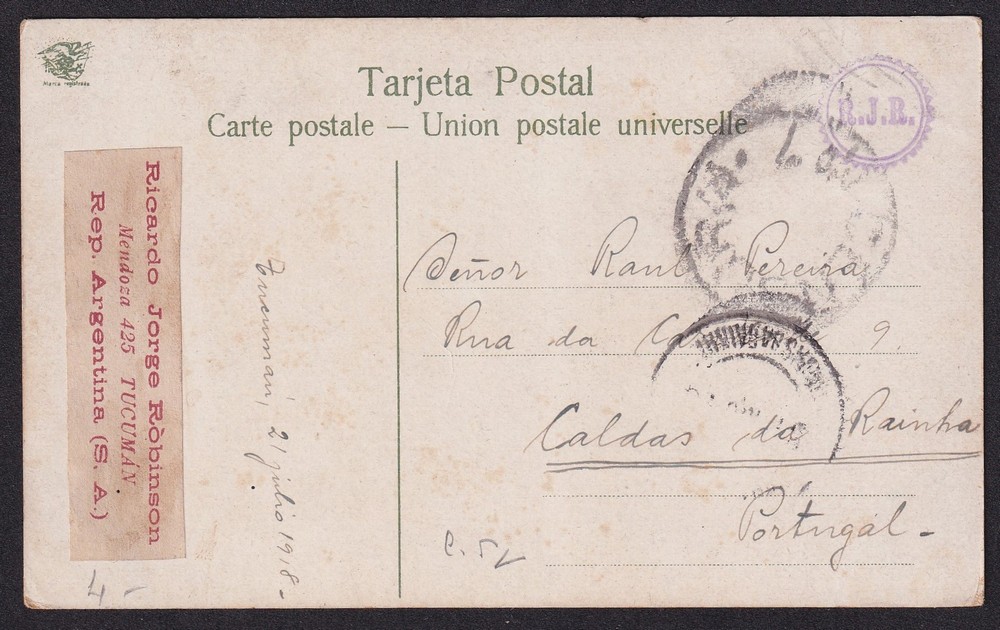 Marca registrada
Tarjeta Postal
Carte postale — Union postale universelle
R.J.R.
Ricardo Jorge Robinson
Mendoza 425 TUCUMÁN
Rep. Argentina (S. A.)
Tucumán, 21 julio 1918 -
Señor Raul Pereira
Rua da 9.
Caldas da Rainha
Portugal -
4 -